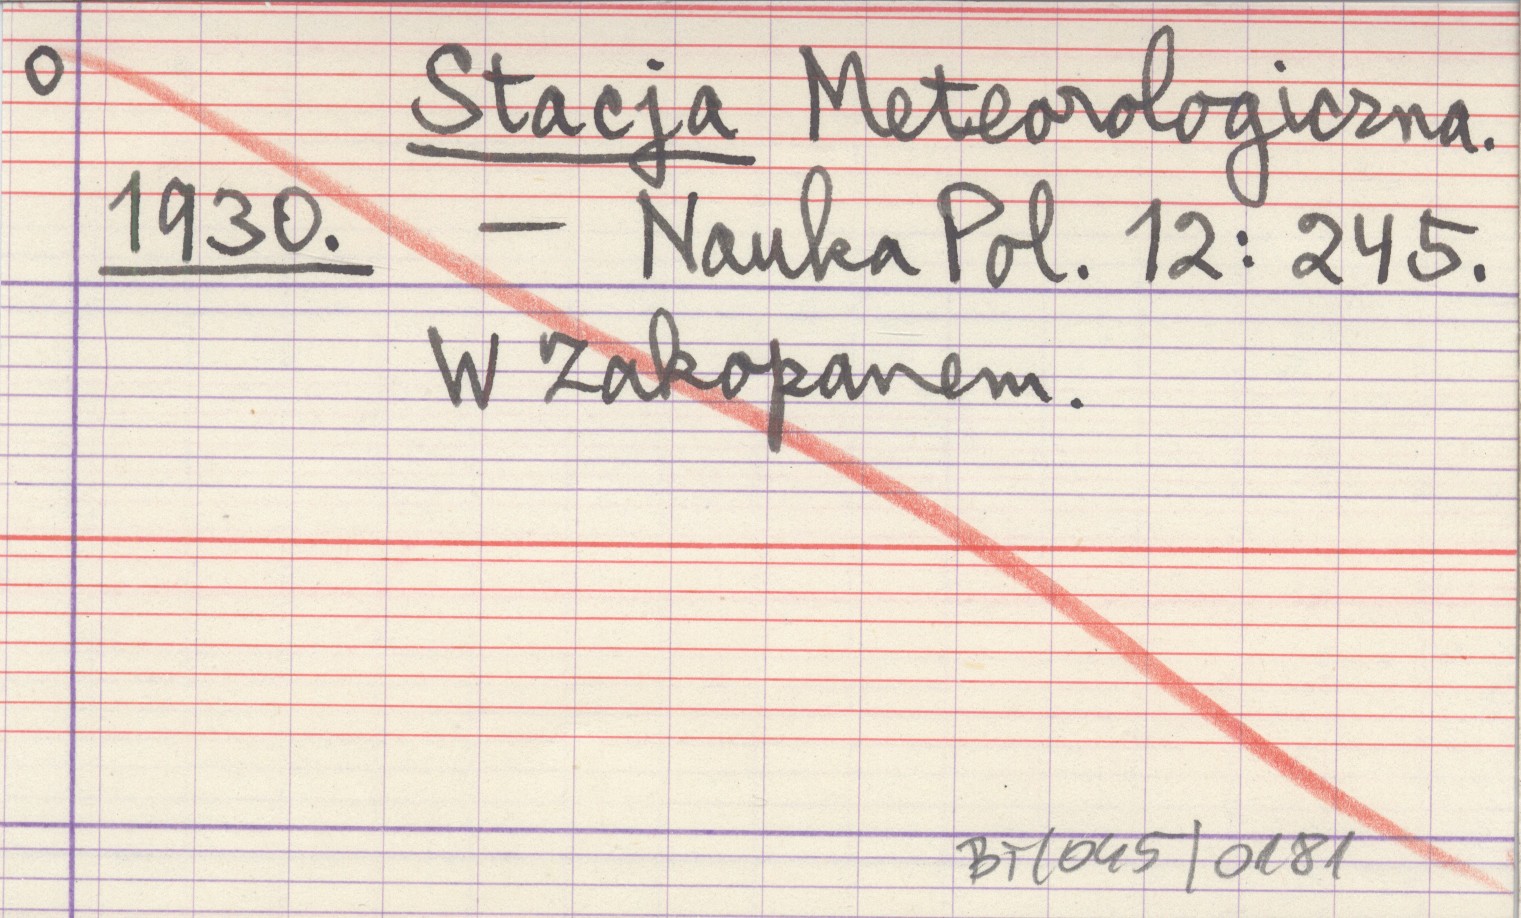 O Stacja Meteorologiczna.
1930. — Nauka Pol. 12: 245.
W Zakopanem.
BT/045/0181